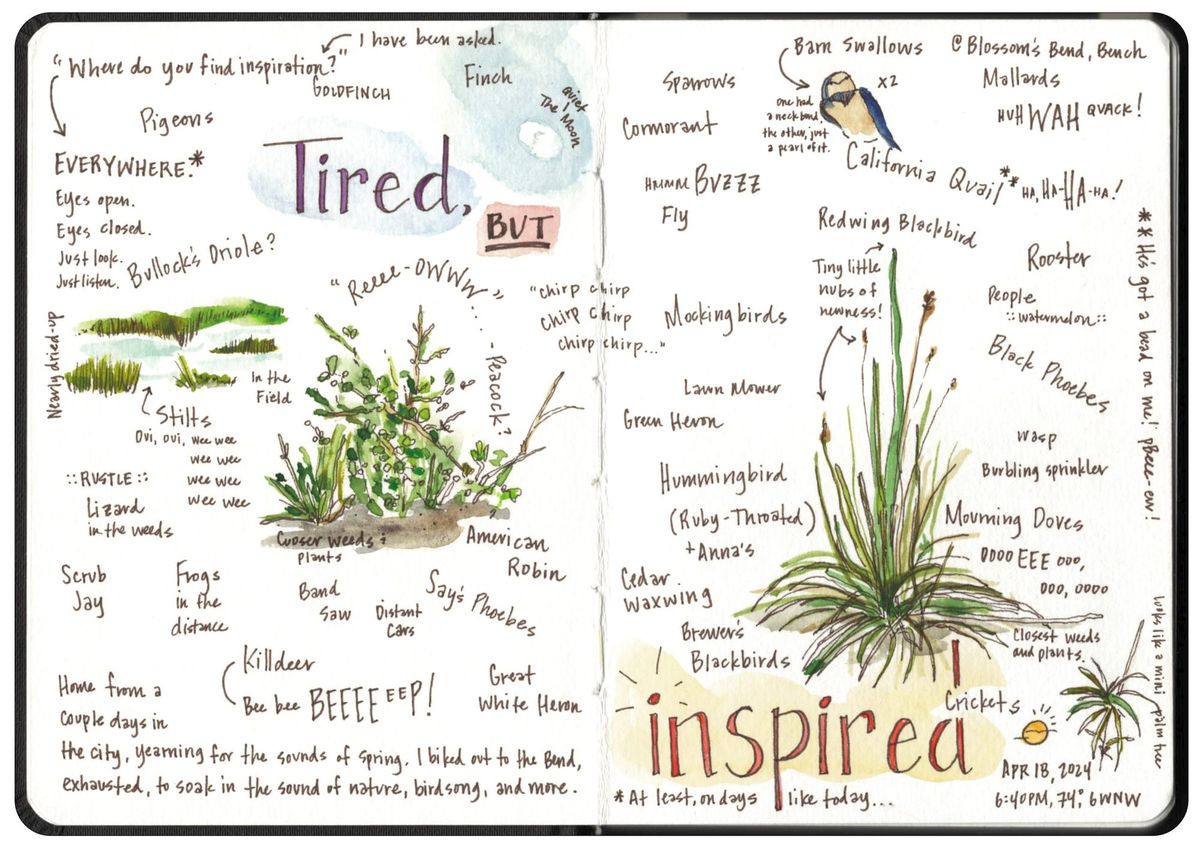 "Where do you find inspiration?"
I have been asked.
GOLDFINCH
Finch
quiet
The Moon
Pigeons
EVERYWHERE.*
Eyes open.
Eyes closed.
Just look.
Just listen.
Bullock's Oriole?
Tired,
BUT
"Reeee-OWWW"...
- Peacock?
"chirp chirp
chirp chirp
chirp chirp..."
Nearly dried-up
In the
Field
Stilts
Ovi, ovi, wee wee
wee wee
wee wee
wee wee
::RUSTLE::
Lizard
in the weeds
Closer weeds &
plants
American
Robin
Scrub
Jay
Frogs
in the
distance
Band
Saw
Distant
Cars
Say's Phoebes
Killdeer
Bee bee BEEEEEEP!
Great
White Heron
Home from a
couple days in
the city, yearning for the sounds of Spring. I biked out to the Bend,
exhausted, to soak in the sound of nature, birdsong, and more.
Sparrows
Cormorant
Barn Swallows
x2
one had
a neckband,
the other, just
a pearl of it.
@Blossom's Bend, Bench
Mallards
HUH WAH QUACK!
California Quail** HA, HA-HA-HA!
Hmmmm BUZZZ
Fly
Redwing Blackbird
Tiny little
nubs of
newness!
Rooster
People
::watermelon::
Mockingbirds
Black Phoebes
Lawn Mower
Green Heron
Wasp
Burbling sprinkler
Hummingbird
(Ruby-Throated)
+ Anna's
Mourning Doves
OOOO EEE ooo,
ooo, oooo
Cedar
Waxwing
Brewer's
Blackbirds
Closest weeds
and plants.
**He's got a bead on me! pBeee-ew!
looks like a mini palm tree
Crickets
inspired
APR 18, 2024
6:40PM, 74°, 6WNW
*At least, on days like today...